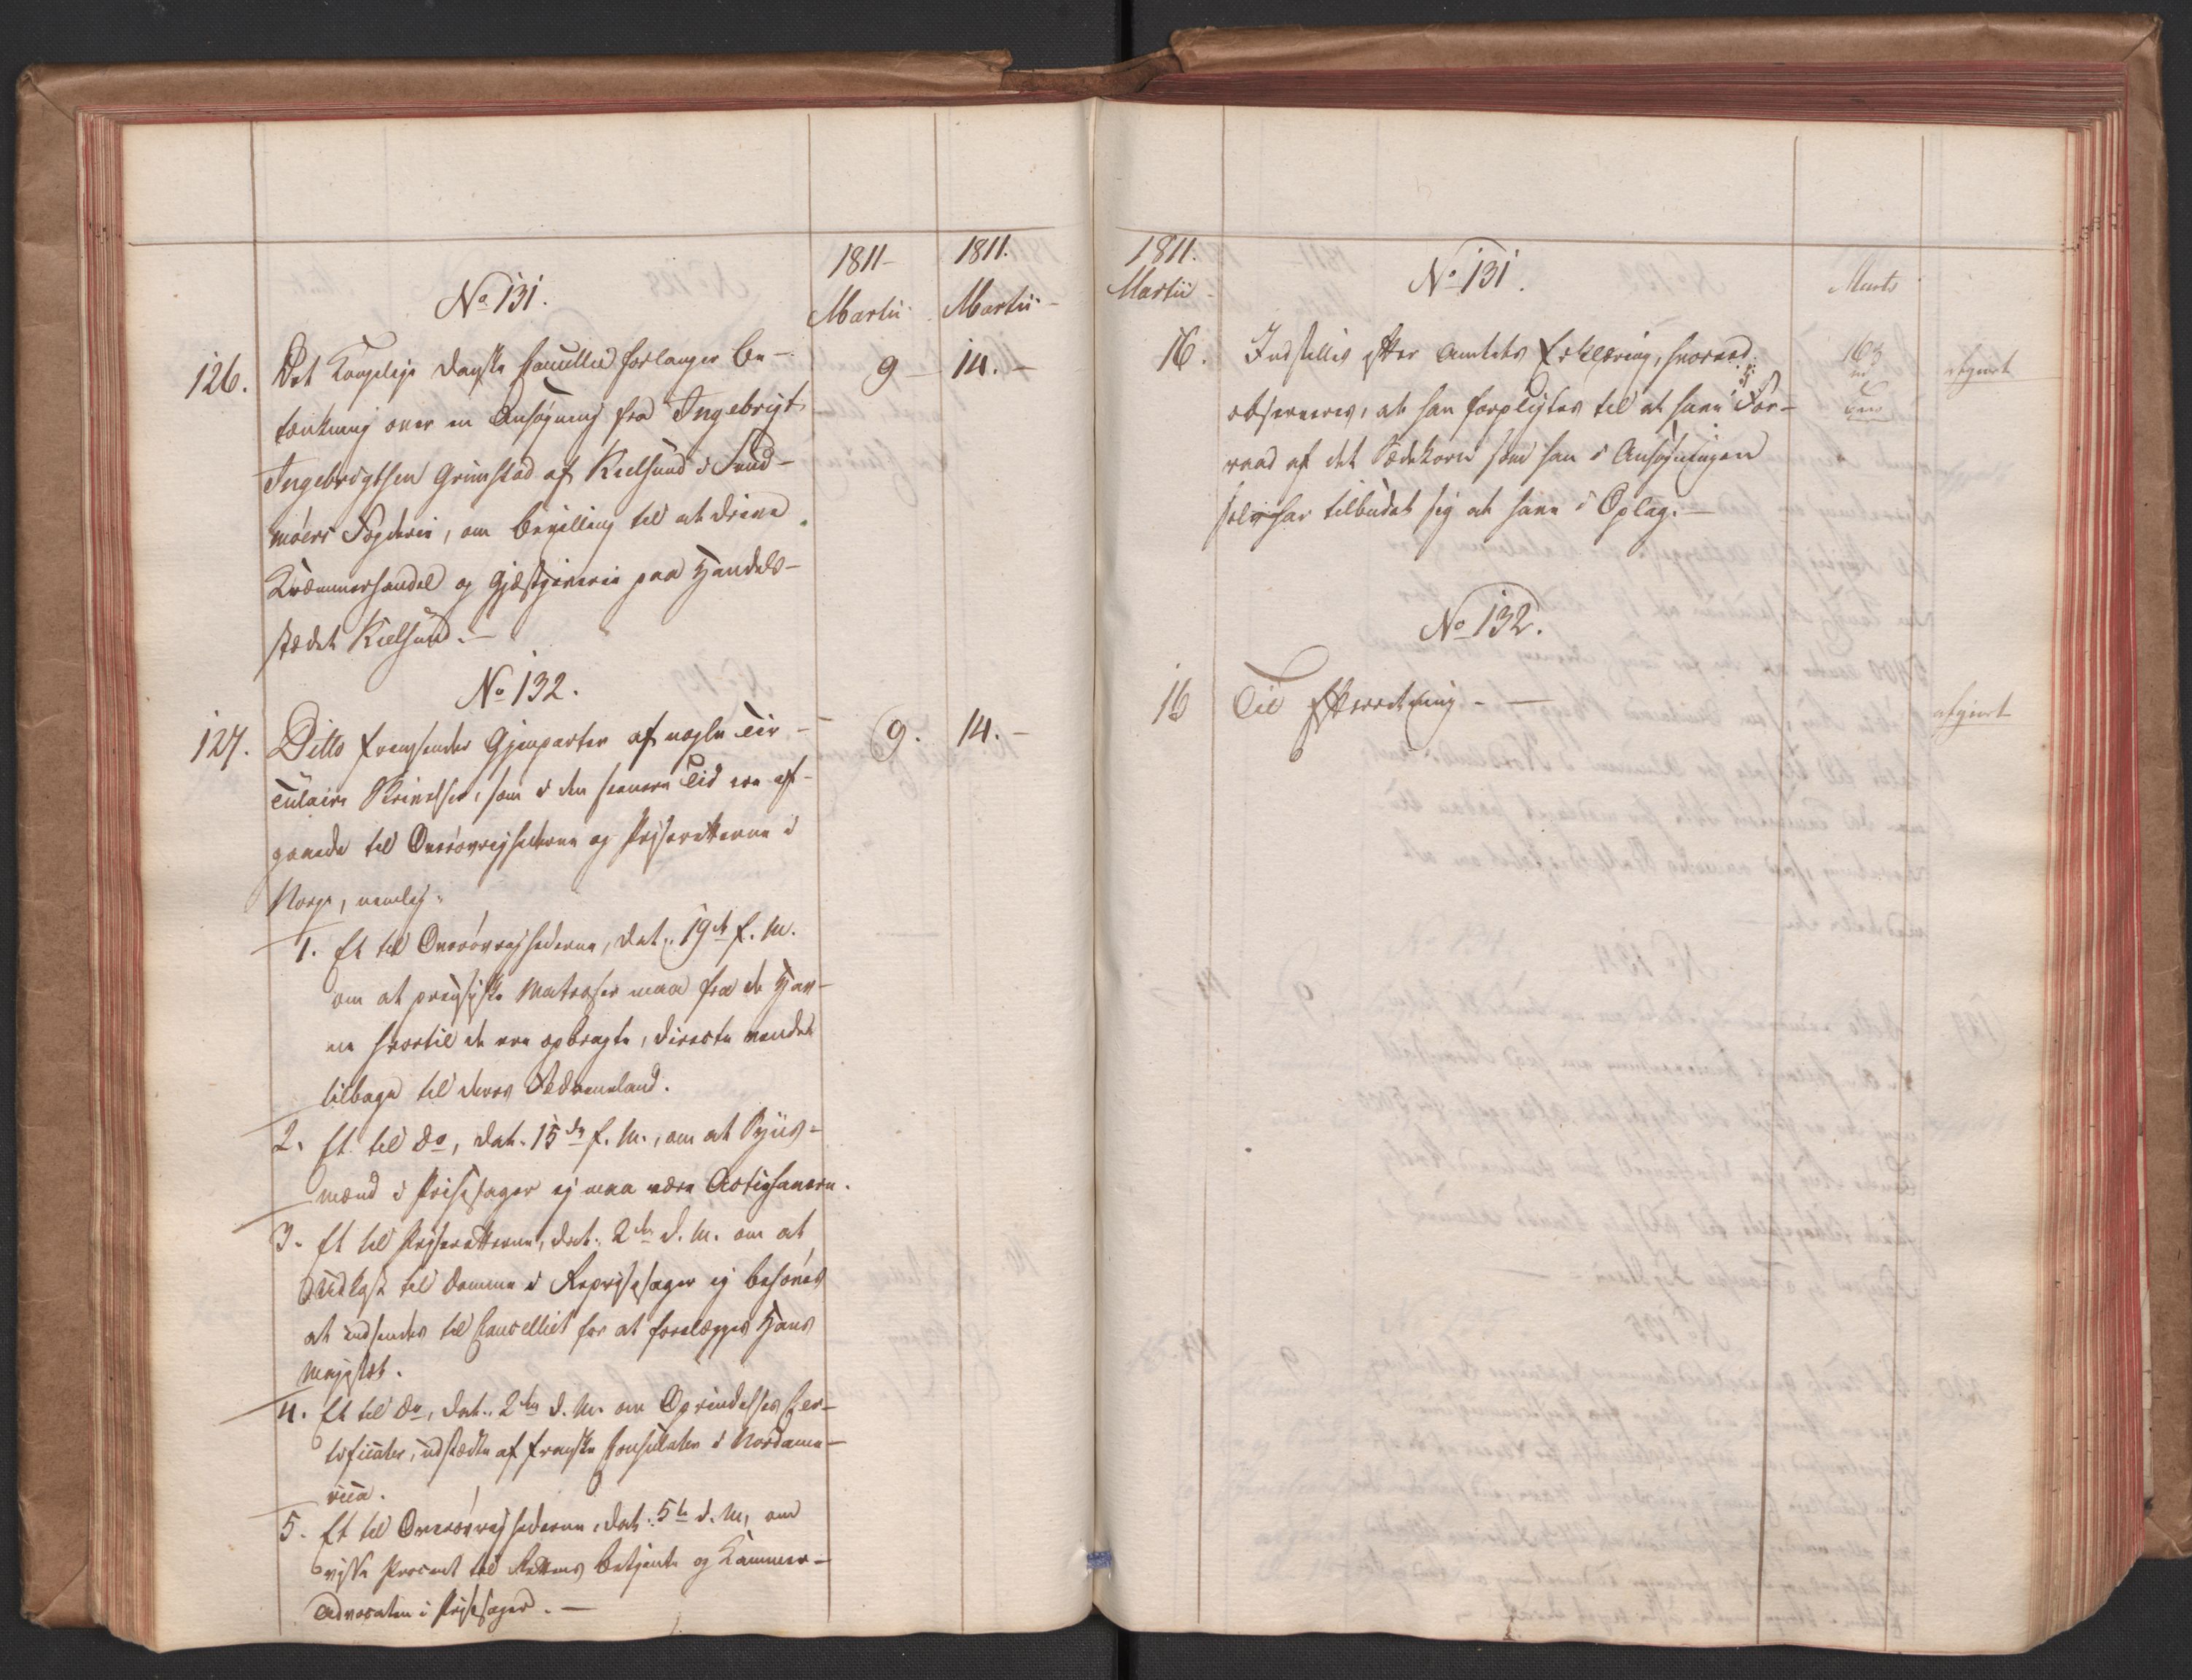 1811
1811.
Martii
Martii
No 131.
126.
Det Kongelige danske Cancellie forlanger Be-
9
14.
tænkning over en Ansøgning fra Ingebrigt
Ingebrigtsen Grimstad af Kielsund i Sund-
møers Fogderie, om Bevilling til at drive
Kræmmerhandel og Gjæstgiverie paa Handels-
stædet Kielsund.
No 132.
127.
Ditto fremsender Gjenparter af nogle Cir-
9.
14.
culaire Skrivelser, som i den senere Tid ere af-
gaaede til Overøvrighederne og Priseretterne i
Norge, nemlig:
1. Et til Overøvrighederne, dat: 19de f. M.
om at preussiske Matroser maa fra de Hav-
ne hvortil de ere opbragte, directe vende
tilbage til deres Fædreneland.
2. Et til do, dat. 15de f. M., om at Syns-
mænd i Prisesager ej maa være Actiehavere.
3. Et til Priseretterne, dat: 2den d. M. om at
Udkast til Domme i Reprisesager ej behøves
at indsendes til Cancelliet for at forelægges Hans
Majestæt.
4. Et til do, dat: 2den d. M. om Oprindelses Cer-
tificater, udstædte af franske Consulater i Nordame-
rica.
5. Et til Overøvrighederne, dat: 5te d. M, om
visse Procent til Rettens Betjente og Kammer-
Advocaten i Prisesager.
1811.
Martii
No 131.
Marts
16.
Indstilles efter Amtets Erklæring, hvorved
163
afgjort
observeres, at han forpligtes til at have i For-
raad af det Sædekorn som han i Ansøgningen
selv har tilbudet sig at have i Oplag.
No 132.
16
Til Efterretning
afgjort